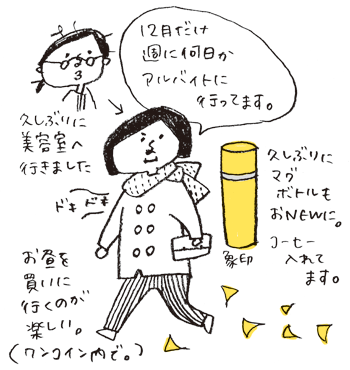 12月だけ
週に何日か
アルバイトに
行ってます。
久しぶりに
美容室へ
行きました
ドキドキ
久しぶりに
マグ
ボトルも
おNEWに。
コーヒー
入れて
ます。
象印
お昼を
買いに
行くのが
楽しい。
(ワンコイン内で。)